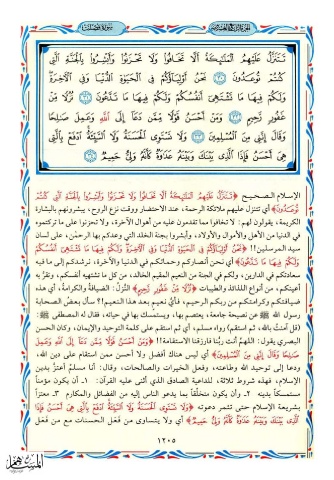 سورة فصلت
تَتَنَزَّلُ عَلَيْهِمُ الْمَلَائِكَةُ أَلَّا تَخَافُوا وَلَا تَحْزَنُوا وَأَبْشِرُوا بِالْجَنَّةِ الَّتِي
كُنتُمْ تُوعَدُونَ ٣٠ نَحْنُ أَوْلِيَاؤُكُمْ فِي الْحَيَاةِ الدُّنْيَا وَفِي الْآخِرَةِ
وَلَكُمْ فِيهَا مَا تَشْتَهِي أَنفُسُكُمْ وَلَكُمْ فِيهَا مَا تَدَّعُونَ ٣١ نُزُلًا مِّنْ
غَفُورٍ رَّحِيمٍ ٣٢ وَمَنْ أَحْسَنُ قَوْلًا مِّمَّن دَعَا إِلَى اللَّهِ وَعَمِلَ صَالِحًا
وَقَالَ إِنَّنِي مِنَ الْمُسْلِمِينَ ٣٣ وَلَا تَسْتَوِي الْحَسَنَةُ وَلَا السَّيِّئَةُ ادْفَعْ بِالَّتِي
هِيَ أَحْسَنُ فَإِذَا الَّذِي بَيْنَكَ وَبَيْنَهُ عَدَاوَةٌ كَأَنَّهُ وَلِيٌّ حَمِيمٌ ٣٤
الإسلام الصحيح ﴿تَتَنَزَّلُ عَلَيْهِمُ الْمَلَائِكَةُ أَلَّا تَخَافُوا وَلَا تَحْزَنُوا وَأَبْشِرُوا بِالْجَنَّةِ الَّتِي كُنتُمْ
تُوعَدُونَ﴾ أي تتنزل عليهم ملائكة الرحمة، عند الاحتضار ووقت نزع الروح، يبشرونهم بالبشارة
الكريمة، يقولون لهم: لا تخافوا مما تقدمون عليه من أهوال الآخرة، ولا تحزنوا على ما تركتموه
في الدنيا من الأهل والأموال والأولاد، وأبشروا بجنة الخلد التي وعدكم بها الرحمن، على لسان
سيد المرسلين!! ﴿نَحْنُ أَوْلِيَاؤُكُمْ فِي الْحَيَاةِ الدُّنْيَا وَفِي الْآخِرَةِ وَلَكُمْ فِيهَا مَا تَشْتَهِي أَنفُسُكُمْ
وَلَكُمْ فِيهَا مَا تَدَّعُونَ﴾ أي نحن أنصاركم وحماتكم في الدنيا والآخرة، نرشدكم إلى ما فيه
سعادتكم في الدارين، ولكم في الجنة من النعيم المقيم الخالد، من كل ما تشتهيه أنفسكم، وتقرُّ به
أعينكم، من أنواع اللذائذ والطيبات ﴿نُزُلًا مِّنْ غَفُورٍ رَّحِيمٍ﴾ النُّزُل: الضيافةُ والكرامةُ، أي هذه
ضيافتكم وكرامتكم من ربكم الرحيم، فأيُّ نعيم بعد هذا النعيم؟! سأل بعضُ الصحابة
رسول الله ﷺ عن نصيحة جامعة، يعتصم بها، ويتمسك بها في حياته، فقال له المصطفى ﷺ:
(قل آمنتُ بالله، ثم استقم) رواه مسلم، أي ثم استقم على كلمة التوحيد والإيمان، وكان الحسن
البصري يقول: اللهم أنت ربُّنا فارزقنا الاستقامة!! ﴿وَمَنْ أَحْسَنُ قَوْلًا مِّمَّن دَعَا إِلَى اللَّهِ وَعَمِلَ
صَالِحًا وَقَالَ إِنَّنِي مِنَ الْمُسْلِمِينَ﴾ أي ليس هناك أفضل ولا أحسن ممن استقام على دين الله،
ودعا إلى توحيد الله وطاعته، وفعل الخيرات والصالحات، وقال: أنا مسلم أعتزُّ بدين
الإسلام، فهذه شروط ثلاثة، للداعية الصادق الذي أثنى عليه القرآن: ١ـ أن يكون مؤمناً
مستمسكاً بدينه ٢ـ وأن يكون متخلِّقاً بما يدعو الناس إليه من الفضائل والمكارم ٣ـ معتزاً
بشريعة الإسلام حتى تثمر دعوته ﴿وَلَا تَسْتَوِي الْحَسَنَةُ وَلَا السَّيِّئَةُ ادْفَعْ بِالَّتِي هِيَ أَحْسَنُ فَإِذَا
الَّذِي بَيْنَكَ وَبَيْنَهُ عَدَاوَةٌ كَأَنَّهُ وَلِيٌّ حَمِيمٌ﴾ أي لا يتساوى من فَعَل الحسنات مع من فَعَل
١٢٠٥